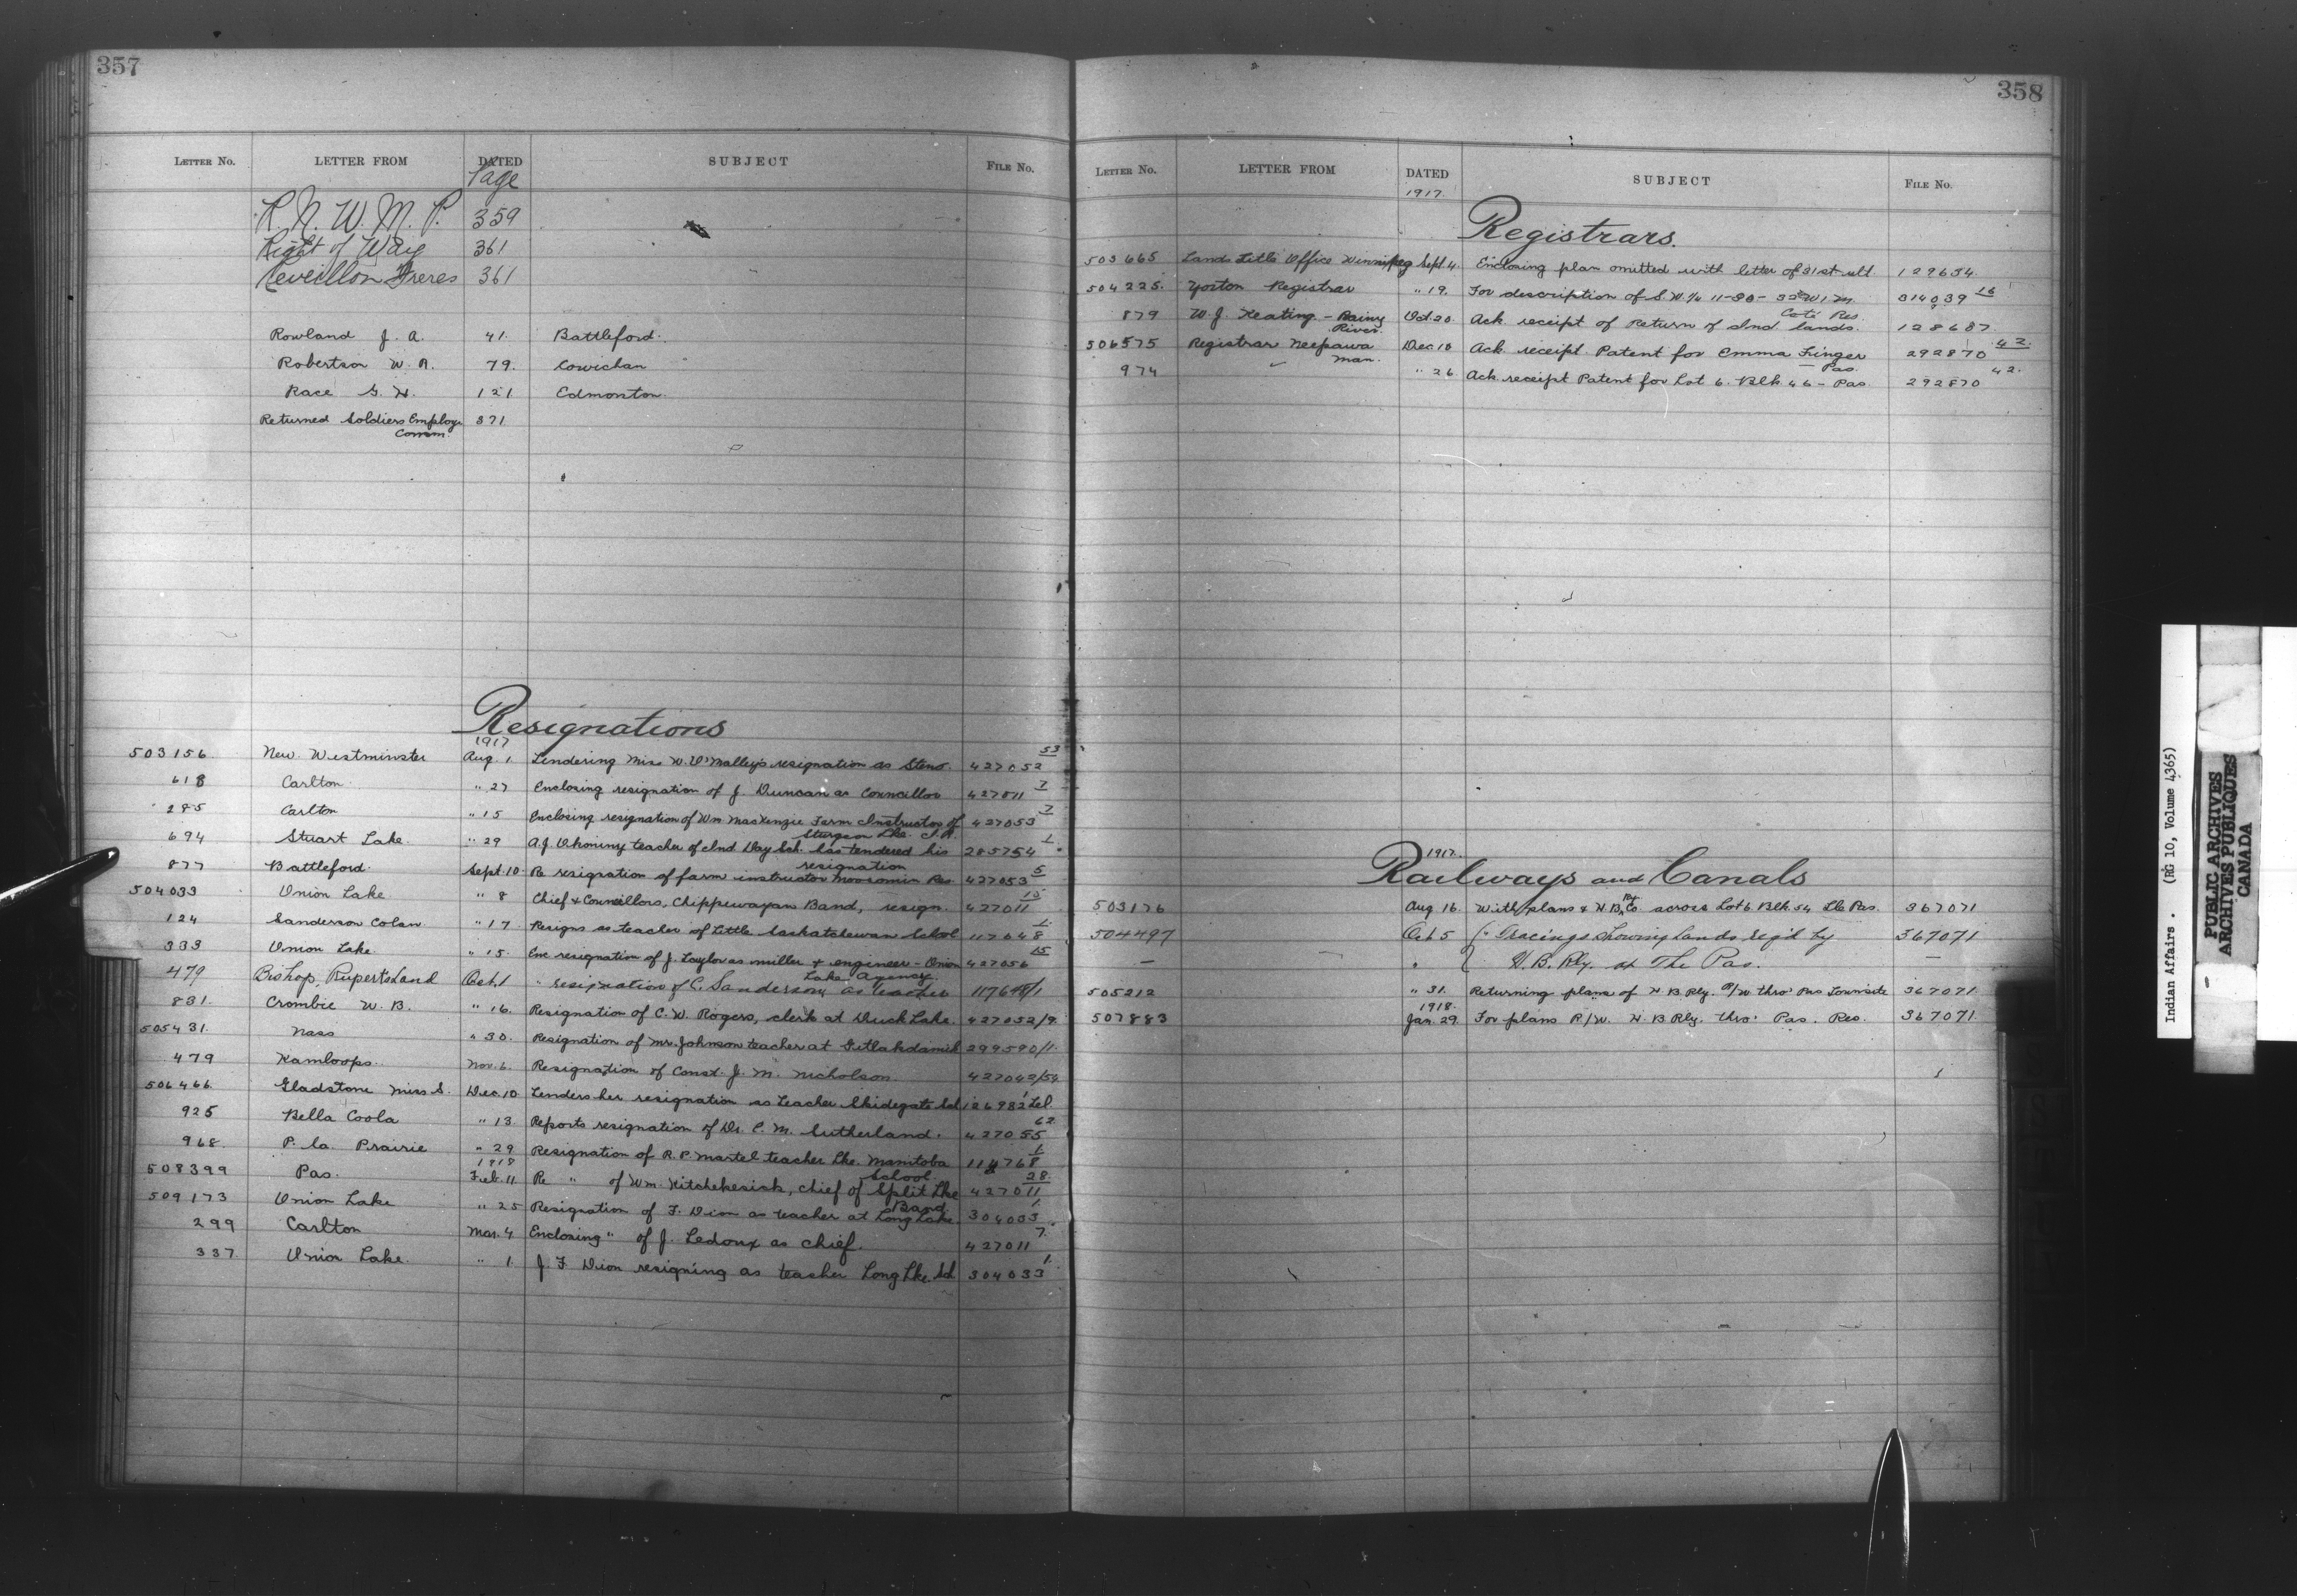 357
LETTER NO. LETTER FROM DATED SUBJECT FILE No.
Page
R. N. W. M. P. 359
Right of Way 361
Reveillon Freres 361
Rowland J. A. 41. Battleford.
Robertson W. R. 79. Cowichan
Race G. H. 121 Edmonton.
Returned Soldiers Employ. 371
Comm.
Resignations
1917
503156 New Westminster Aug. 1 Tendering Miss W. O'Malley's resignation as Steno. 427052 53
618 Carlton " 27 Enclosing resignation of J. Duncan as Councillor 427011 7
285 Carlton " 15 Enclosing resignation of Wm Mackenzie Farm Instructor of 427053 7
Sturgeon Lke. I.R.
694 Stuart Lake. " 29 A.J. teacher of Ind Day Sch. has tendered his 285754 1
resignation
877 Battleford. Sept. 10 Re resignation of farm instructor Moosomin Res 427053 5
504033 Onion Lake " 8 Chief & Councillors, Chippewayan Band, resign. 427011 15
124 Sanderson Colan " 17 Resigns as teacher of Little Saskatchewan School 117648 1
333 Onion Lake " 15. Enc resignation of J. Taylor as miller & engineer - Onion 427056 15
Lake Agency.
479 Bishop, Ruperts Land Oct. 1 " resignation of C. Sanderson as teacher 117648/1
831. Crombie W. B. " 16. Resignation of C. W. Rogers, clerk at Duck Lake. 427052/9
505431. Nass " 30. Resignation of Mr. Johnson teacher at Gitlakdamik 299590/1.
479 Kamloops. Nov. 6. Resignation of Const. J. M. Nicholson 427042/54
506466 Gladstone Miss S. Dec. 10 Tenders her resignation as teacher Skidegate Sch 126982 1 Tel.
925 Bella Coola " 13 Reports resignation of Dr. C. M. Sutherland. 427055 62
968. P. la Prairie " 29 Resignation of R. P. Martel teacher Lke. Manitoba 114768 1
School
1918
508399 Pas. Feb. 11 Re " of Wm. Kitchekesick, chief of Split Lke 427011 28.
Band
509173 Onion Lake " 25 Resignation of F. Dion as teacher at Long Lake. 304033 1
299 Carlton Mar. 4 Enclosing " of J. Ledoux as chief. 427011 7
337 Onion Lake. " 1. J. F Dion resigning as teacher Long Lke. Sch 304033 1
358
LETTER NO. LETTER FROM DATED SUBJECT FILE No.
1917.
Registrars.
503665 Lands Title Office Winnipeg Sept. 4. Enclosing plan omitted with letter of 31st ult 129654.
504225. Yorton Registrar " 19. For description of S.W.¼ 11-30-32 W 1 M. 314039 16
Coté Res.
879 W. J. Keating - Rainy Oct. 20. Ack. receipt of Return of Ind. lands. 128687.
River.
506575 Registrar Neepawa Dec. 18 Ack. receipt Patent for Emma Finger 292870 42.
Man. - Pas.
974 " 26 Ack receipt Patent for Lot 6. Blk 46 - Pas 292870 42.
1917.
Railways and Canals
503176 Aug 16. With plans & H.B. Rly Co. across Lot 6 Blk. 54 The Pas. 367071
504497 Oct 5 " Tracings showing lands req'd by 367071
H. B. Rly. at The Pas.
505212 " 31. Returning plans of H B Rly. R/W thro' Pas Townsite 367071
1918.
507883 Jan. 29. For plans R/W. H. B Rly. thro' Pas. Res. 367071
Indian Affairs. (RG 10, Volume 4365)
PUBLIC ARCHIVES
ARCHIVES PUBLIQUES
CANADA